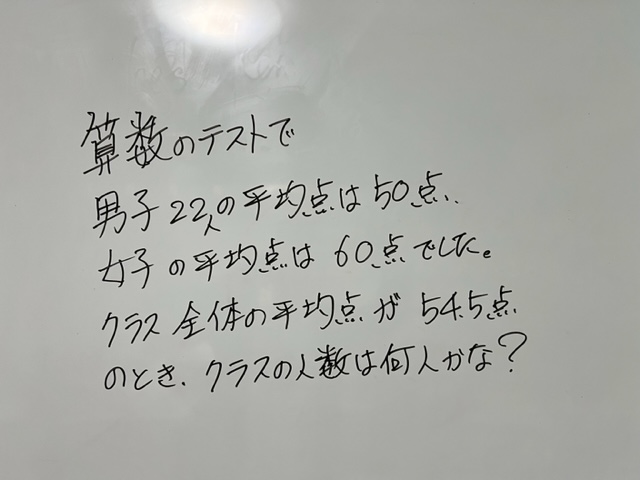 算数のテストで
男子22人の平均点は50点、
女子の平均点は60点でした。
クラス全体の平均点が54.5点
のとき、クラスの人数は何人かな?